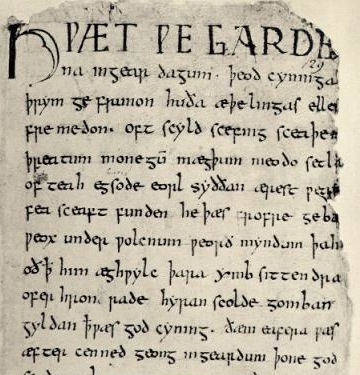 HǷÆT ǷE GARDE
na ingear dagum. þeod cyninga
þrym ge frunon huða æþelingas elle
fremedon. oft scyld scefing sceaþe
þreatum monegū mægþum meodo setla
of teah egsode eorl syððan ærest ƿea
fea sceaft funden he þæs frofre geba
ƿeox under ƿolcnum ƿeorð myndum þah
oð þ him æghƿylc þara ymb sittendra
ofer hron rade hyran scolde gomban
gyldan þ ƿæs god cyning. ðæm eafera ƿæs
æfter cenned geong ingeardum þone god